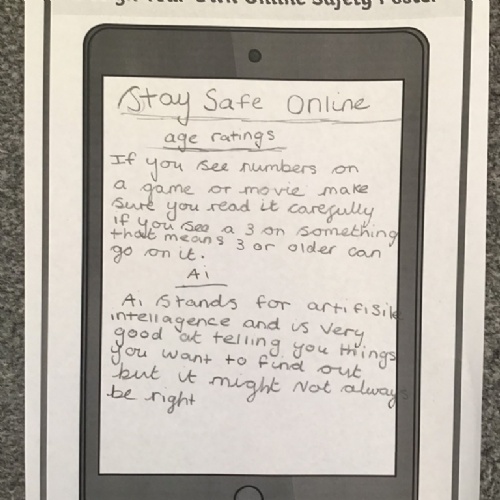 Your Own Online Safety Poster
Stay Safe Online
age ratings
If you see numbers on
a game or movie make
sure you read it carefully
if you see a 3 on something
that means 3 or older can
go on it.
Ai
Ai stands for artifisik
intellagence and is very
good at telling you things
you want to find out
but it might not always
be right